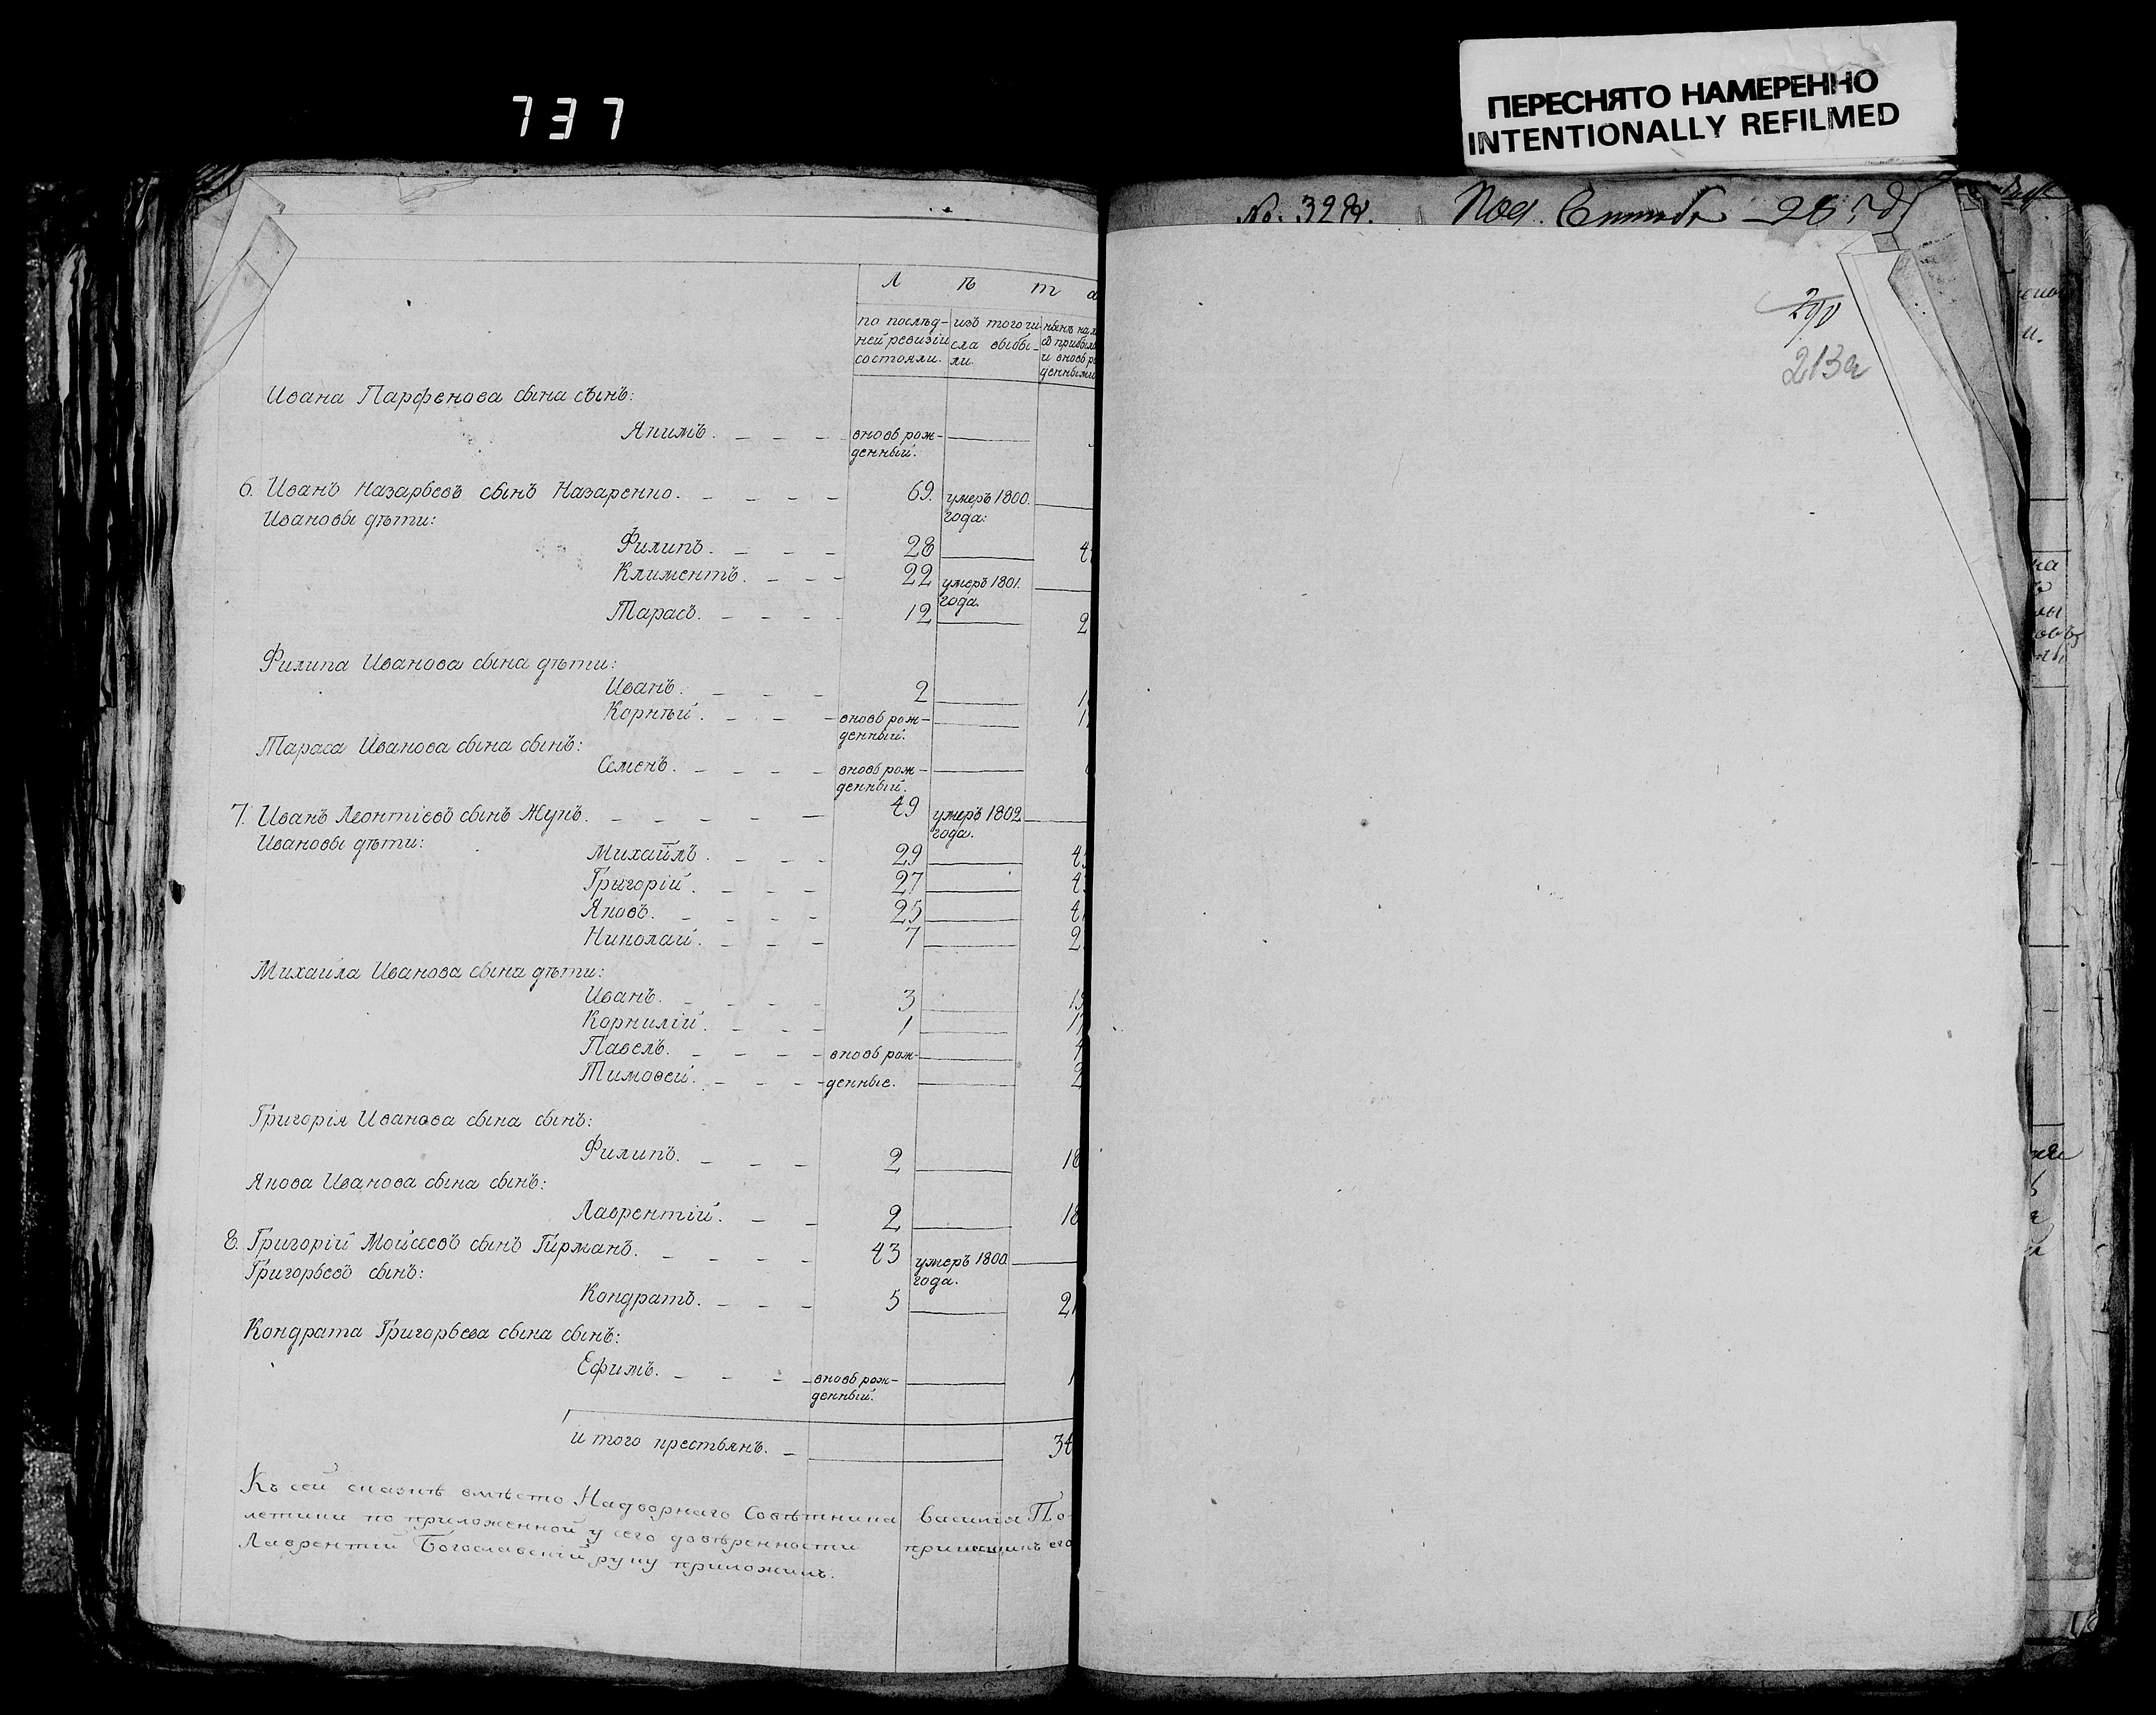 737
ПЕРЕСНЯТО НАМЕРЕННО
INTENTIONALLY REFILMED
No. 329
213а
Л ѣ т а
по послѣд- изъ того чи- нынѣ на
ней ревизіи сла выбы- съ прибыл
состояли. ли. и вновь р
денными
Ивана Парфенова сына сынъ:
Якимъ. вновь рож-
денный.
6. Иванъ Назарьевъ сынъ Назаренко. 69. умеръ 1800.
Ивановы дѣти: года.
Филипъ. 28 4
Климентъ. 22 умеръ 1801.
года.
Тарасъ. 12 2
Филипа Иванова сына дѣти:
Иванъ. 2 1
Корнѣй. вновь рож- 1
денный.
Тараса Иванова сына сынъ:
Семенъ. вновь рож-
денный.
7. Иванъ Леонтіевъ сынъ Жукъ. 49 умеръ 1802
Ивановы дѣти: года.
Михайлъ. 29 4
Григорій. 27 4
Яковъ. 25 4
Николай. 7 2
Михаила Иванова сына дѣти:
Иванъ. 3 1
Корнилій. 1 1
Павелъ. вновь рож-
Тимовей. денные. 2
Григорія Иванова сына сынъ:
Филипъ. 2 18
Якова Иванова сына сынъ:
Лаврентій. 2 18
8. Григорій Мойсеевъ сынъ Гирманъ. 43 умеръ 1800
Григорьевъ сынъ: года.
Кондратъ. 5 21
Кондрата Григорьева сына сынъ:
Ефимъ. вновь рож- 1
денный.
и того крестьянъ. 34
Къ сей сказкѣ вмѣсто Надворнаго Совѣтника Василія По-
летики по приложенной у сего довѣренности его
Лаврентій Богославскій руку приложилъ.